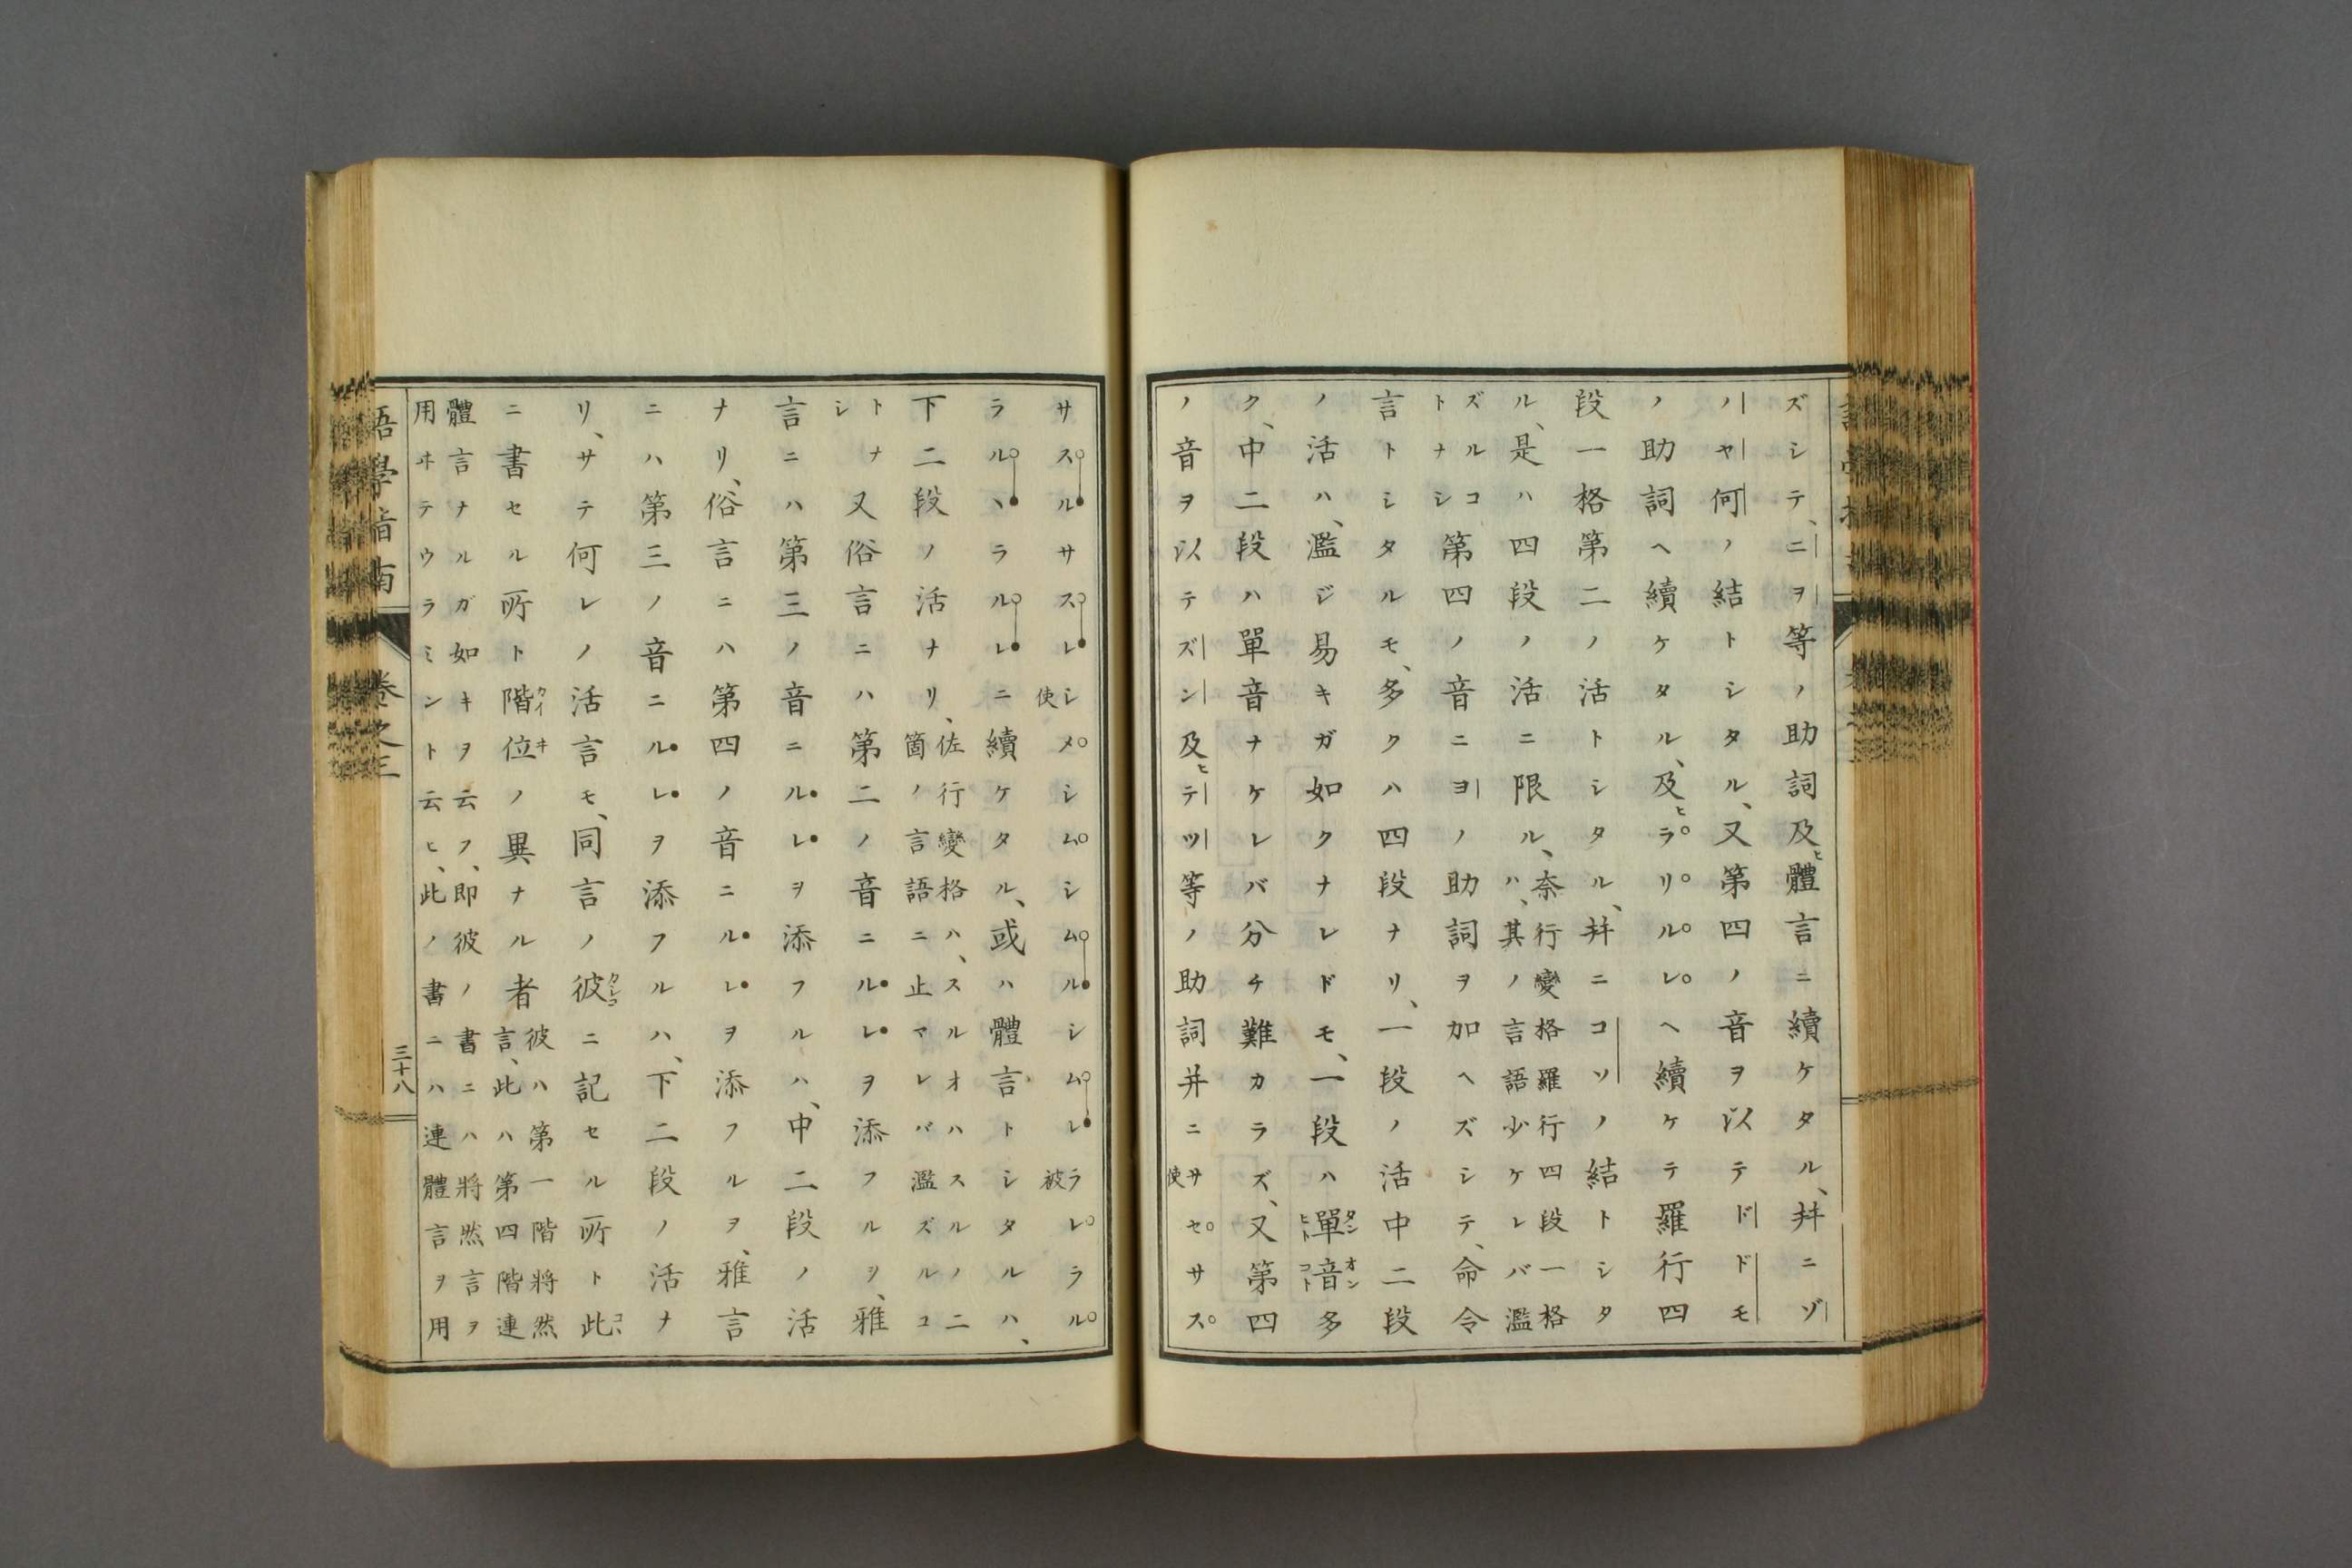 ズシテ、ニヲ等ノ助詞及ヒ體言ニ續ケタル、幷ニゾ
ノヤ何ノ結トシタル、又第四ノ音ヲ以テドドモ
ノ助詞ヘ續ケタル、及ヒラリルレヘ續ケテ羅行四
段一格第二ノ活トシタル、幷ニコソノ結トシタ
ル、是ハ四段ノ活ニ限ル、奈行變格羅行四段一格
ハ、其ノ言語少ケレバ濫
ズルコ
トナシ
第四ノ音ニヨノ助詞ヲ加ヘズシテ、命令
言トシタルモ、多クハ四段ナリ、一段ノ活中二段
ノ活ハ、濫ジ易キガ如クナレドモ、一段ハ單音多
タンオン
ヒトコト
ク、中二段ハ單音ナケレバ分チ難カラズ、又第四
ノ音ヲ以テズン及ヒテツ等ノ助詞并ニサセサス
使
サスルサスレシメシムシムルシムレラレラル
使
被
ラルヽラルレニ續ケタル、或ハ體言トシタルハ、
下二段ノ活ナリ、佐行變格ハ、スルオハスルノ二
箇ノ言語ニ止マレバ濫ズルコ
トナ
シ
又俗言ニハ第二ノ音ニルレヲ添フルヲ、雅
言ニハ第三ノ音ニルレヲ添フルハ、中二段ノ活
ナリ、俗言ニハ第四ノ音ニルレヲ添フルヲ、雅言
ニハ第三ノ音ニルレヲ添フルハ、下二段ノ活ナ
リ、サテ何レノ活言モ、同言ノ彼ニ記セル所ト此
ニ書セル所ト階位ノ異ナル者
カイヰ
彼ハ第一階將然
言、此ハ第四階連
體言ナルガ如キヲ云フ、即彼ノ書ニハ將然言ヲ
用ヰテウラミント云ヒ、此ノ書ニハ連體言ヲ用
語學指南
卷之三
三十八